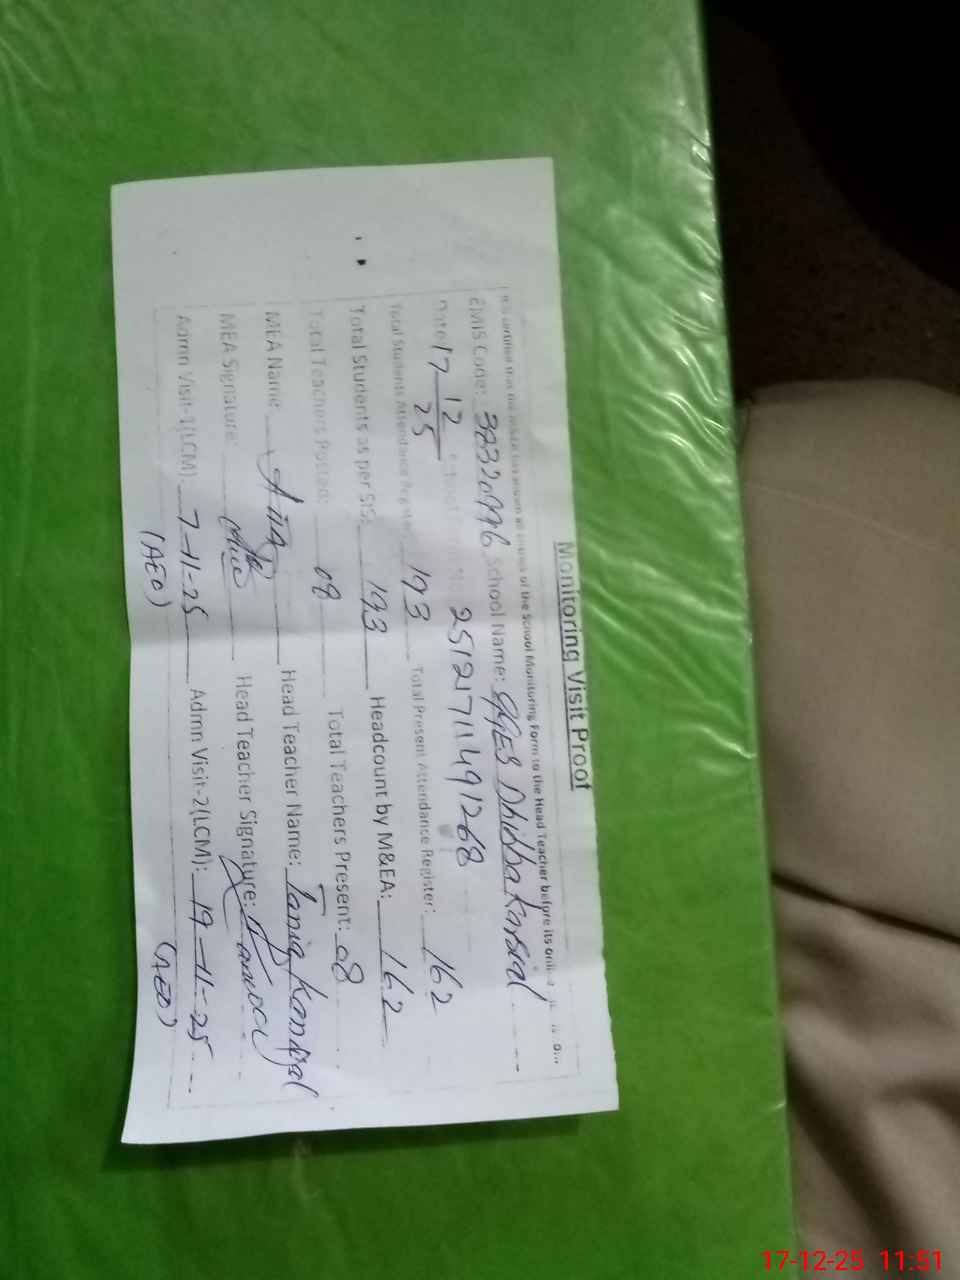 Monitoring Visit Proof
It is certified that the MEA has shown all entries of the School Monitoring Form to the Head Teacher before its
EMIS Code: School Name: Dhibba Karsial
Date: 17 12/25 251217111491268
Total Students Attendance Register: 193 Total Present Attendance Register: 162
Total Students as per SIS: 193 Headcount by M&EA: 162
Total Teachers Posted: 08 Total Teachers Present: 08
MEA Name: Head Teacher Name: Tania
MEA Signature: Head Teacher Signature:
Admn Visit-1(LCM): 7-11-25 Admn Visit-2(LCM): 19-11-25
(AEO) (AEO)
17-12-25 11:51